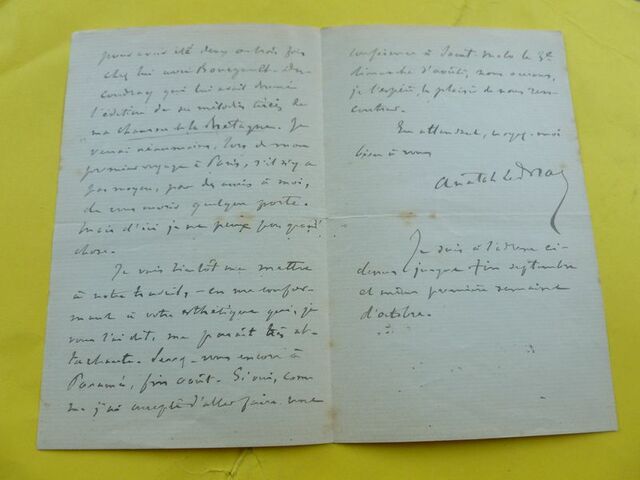 pour avoir été deux ou trois fois
chez lui avec Bourgault-Du-
coudray qui lui avait donné
l'édition de ses mélodies tirées de
ma chanson de la Bretagne. Je
verrai néanmoins, lors de mon
premier voyage à Paris, s'il n'y a
pas moyen, par des amis à moi,
de vous ouvrir quelque porte.
Mais d'ici je ne peux pas grand
chose.
Je vais bientôt me mettre
à notre travail, en me confor-
mant à votre esthétique qui, je
vous l'ai dit, me paraît très at-
tachante. Serez-vous encore à
Paramé, fin août. Si oui, com-
me j'ai accepté d'aller faire une
conférence à Saint-Malo le 3e
dimanche d'août, nous aurons,
je l'espère, le plaisir de nous ren-
contrer.
En attendant, croyez-moi
bien à vous
Anatole Le Braz
Je suis à l'adresse ci-
dessus jusque fin septembre
et même première semaine
d'octobre.